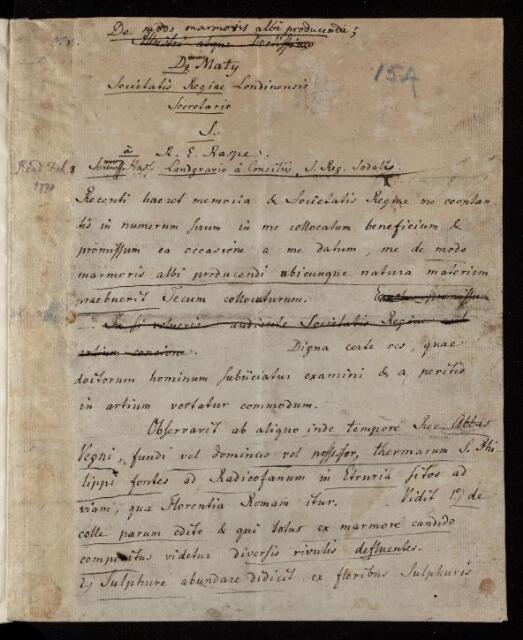 De modo marmoris albi producendi;
Illustri atque Doctissimo
Dr. Maty
Societatis Regiae Londinensis
Secretario
S.
à R. E. Raspe.
Sereniss. Hass. Landgravio à Consiliis, S. Reg. Sodalis
15A
Read Feb. 8
1770
Recenti haeret memoria & Societatis Regiae me cooptan-
tis in numerum suum in me collocatum beneficium &
promissum ea occasione a me datum, me de modo
marmoris albi producendi ubicunque natura materiem
praebuerit Tecum collocuturum. promissum
si volueris audiente Societatis Regiae
Digna certe res, quae
doctorum hominum subiiciatur examini & a peritis
in artium vertatur commodum.
Observavit ab aliquo inde tempore Rev. Abbas
Vegni, fundi vel dominus vel possessor, thermarum S. Phi
lippi fontes ad Radicofanum in Etruria sitos ad
viam, qua Florentia Romam itur. Vidit 1.) de
colle parum edito & qui totus ex marmore candido
compositus videtur diversis rivulis defluentes.
2.) Sulphure abundare didicit ex floribus Sulphuris